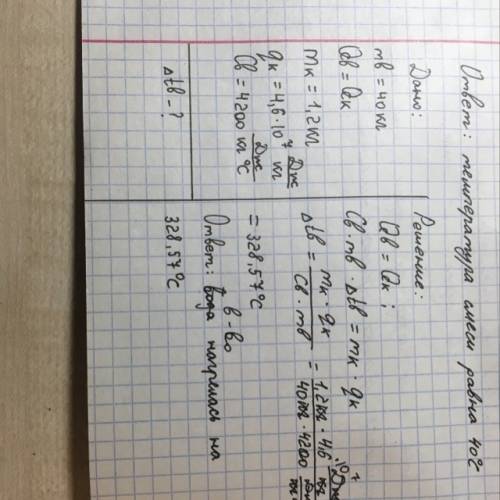 Ответ: температура смеси равна 402
Дано:
mв = 40 кг
Qв = Qк
mк = 1,2 кг
qк = 4,6·10⁷ Дж/кг
Cв = 4200 Дж/кг°С
Δtв - ?
Решение:
Qв = Qк ;
Cв · mв · Δtв = mк · qк
Δtв = mк · qк / Cв · mв = 1,2 кг · 4,6 · 10⁷ Дж/кг / 40 кг · 4200 Дж
= 328,57°С
в-во
Ответ: вода нагрелась на
328,57°С